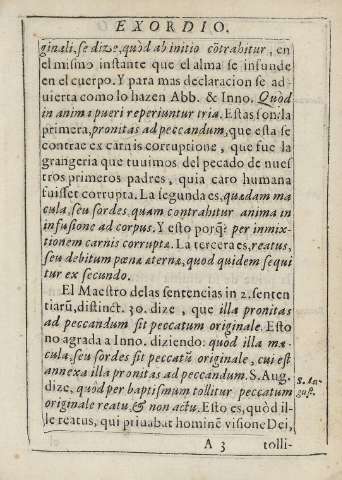 EXORDIO.
ginali, se dize, quòd ab initio cõtrahitur, en
el mismo instante que el alma se infunde
en el cuerpo. Y para mas declaracion se ad-
uierta como lo hazen Abb. & Inno. Quòd
in anima pueri reperiuntur tria. Estas son: la
primera, pronitas ad peccandum, que esta se
contrae ex carnis corruptione, que fue la
grangeria que tuuimos del pecado de nues
tros primeros padres, quia caro humana
fuisset corrupta. La segunda es, quædam ma
cula, seu sordes, quam contrahitur anima in
infusione ad corpus. Y esto porq̃ per inmix-
tionem carnis corruptæ. La tercera es, reatus,
seu debitum pœnæ æternæ, quod quidem sequi
tur ex secundo.
El Maestro delas sentencias in 2. senten
tiarũ, distinct. 30. dize, que illa pronitas
ad peccandum sit peccatum originale. Esto
no agrada a Inno. diziendo: quòd illa ma-
cula, seu sordes sit peccatũ originale, cui est
annexa illa pronitas ad peccandum. S. Aug.
dize, quòd per baptismum tollitur peccatum
originale reatu, & non actu. Esto es, quòd il-
le reatus, qui priuabat hominẽ visione Dei,
S. Au-
gust.
A 3
tolli-